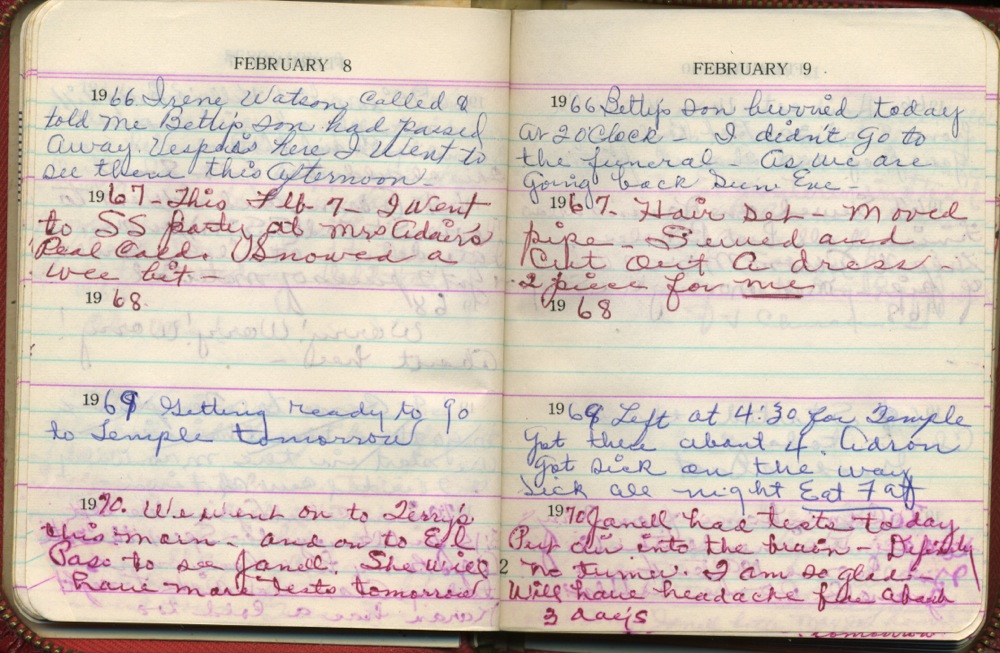 FEBRUARY 8
1966 Irene Watson called &
told me Betty's son had passed
away. Vespa's here I went to
see them this afternoon -
1967 - This Feb 7 - I went
to SS party at Mrs Adair's
Real Cold. Snowed a
wee bit -
1968.
1969 Getting ready to go
to Temple tomorrow
1970. We went on to Terry's
this morn - and on to El
Paso to see Janell. She will
have more tests tomorrow
FEBRUARY 9
1966 Betty's son burried today
at 2 O'Clock - I didn't go to
the funeral - as we are
going back Sun Eve -
1967. Hair set - Moved
pipe - Sewed and
Cut out a dress -
2 piece for me
1968
1969 Left at 4:30 for Temple
Got there about 4. Adron
got sick on the way
sick all night Eat 7 at
1970 Janell had tests today
Put air into the brain - Definitely
2 no tumer. I am so glad -
Will have headache for about
3 day's